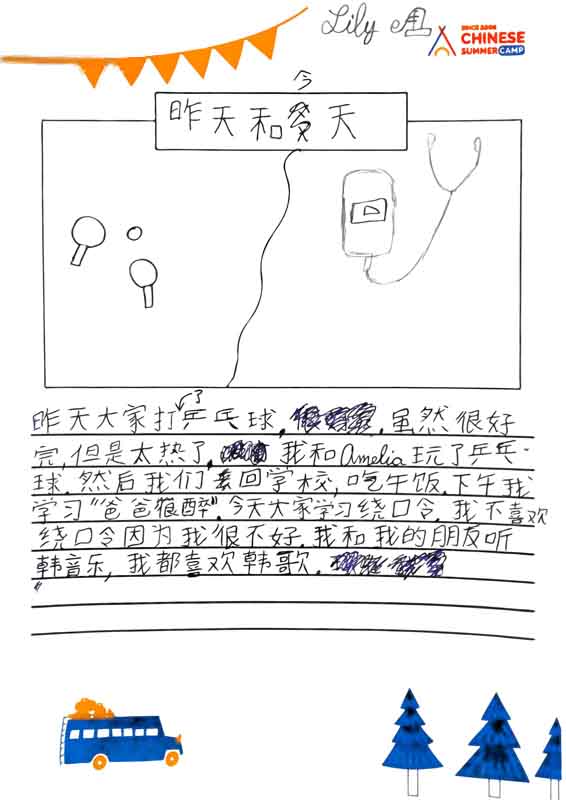 Lily
CHINESE
SUMMER CAMP
今
昨天和天
了
昨天大家打乒乓球. 虽然很好
完,但是太热了. 我和Amelia玩了乒乓
球. 然后我们去回学校, 吃午饭. 下午我
学习"爸爸很醉". 今天大家学习绕口令. 我不喜欢
绕口令因为我很不好. 我和我的朋友听
韩音乐, 我都喜欢韩歌.